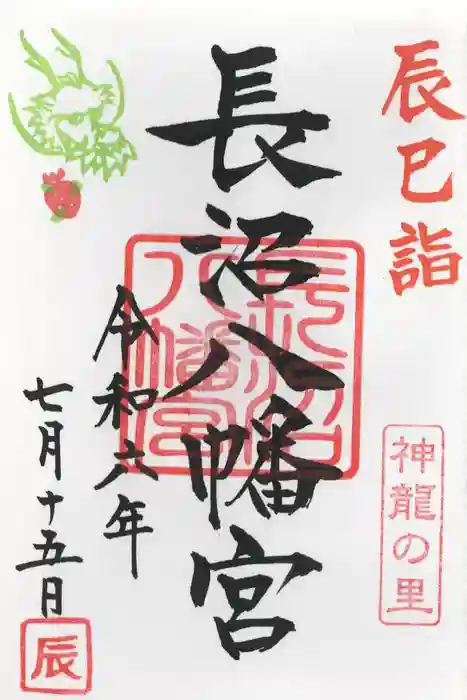 辰巳詣
神龍の里
長沼八幡宮
長沼八幡宮
令和六年
七月十五日
辰